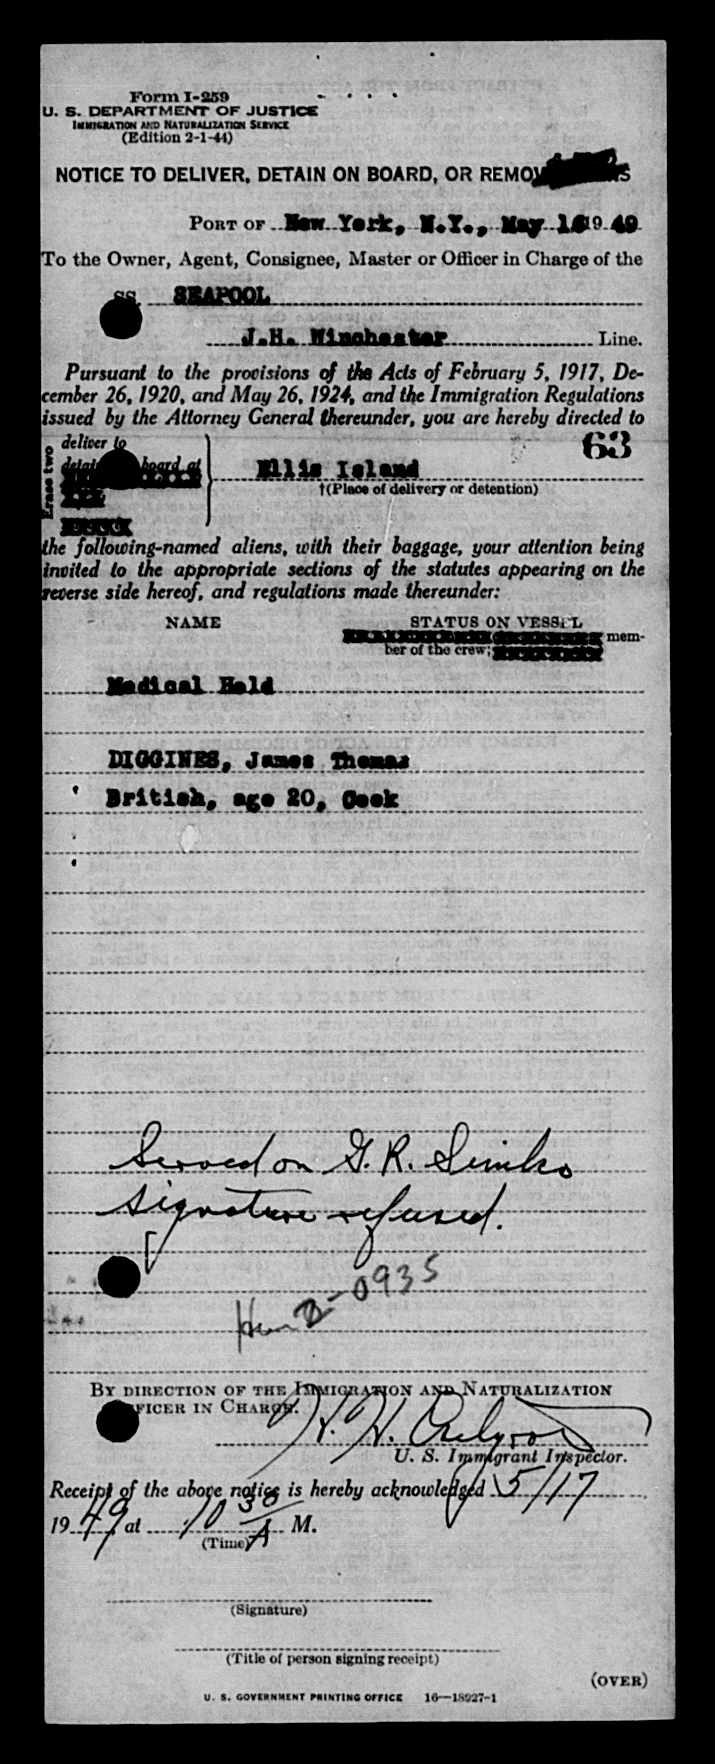 Form I-259
U. S. DEPARTMENT OF JUSTICE
IMMIGRATION AND NATURALIZATION SERVICE
(Edition 2-1-44)
NOTICE TO DELIVER, DETAIN ON BOARD, OR REMOVE
PORT OF New York, N.Y., May 16 1949
To the Owner, Agent, Consignee, Master or Officer in Charge of the
SS. SEAPOOL
J.H. Winchester Line.
Pursuant to the provisions of the Acts of February 5, 1917, De-
cember 26, 1920, and May 26, 1924, and the Immigration Regulations
issued by the Attorney General thereunder, you are hereby directed to
63
Erase two
deliver to
detain board at
Ellis Island
†(Place of delivery or detention)
the following-named aliens, with their baggage, your attention being
invited to the appropriate sections of the statutes appearing on the
reverse side hereof, and regulations made thereunder:
NAME STATUS ON VESSEL
mem-
ber of the crew;
Medical Hold
DIGGINES, James Thomas
British, age 20, Cook
Served on G. R. Simko
signature refused.
0935
BY DIRECTION OF THE IMMIGRATION AND NATURALIZATION
OFFICER IN CHARGE.
U. S. Immigrant Inspector.
Receipt of the above notice is hereby acknowledged 5/17
1949 at 10 30 A M.
(Time)
(Signature)
(Title of person signing receipt)
(OVER)
U. S. GOVERNMENT PRINTING OFFICE 16—18927-1